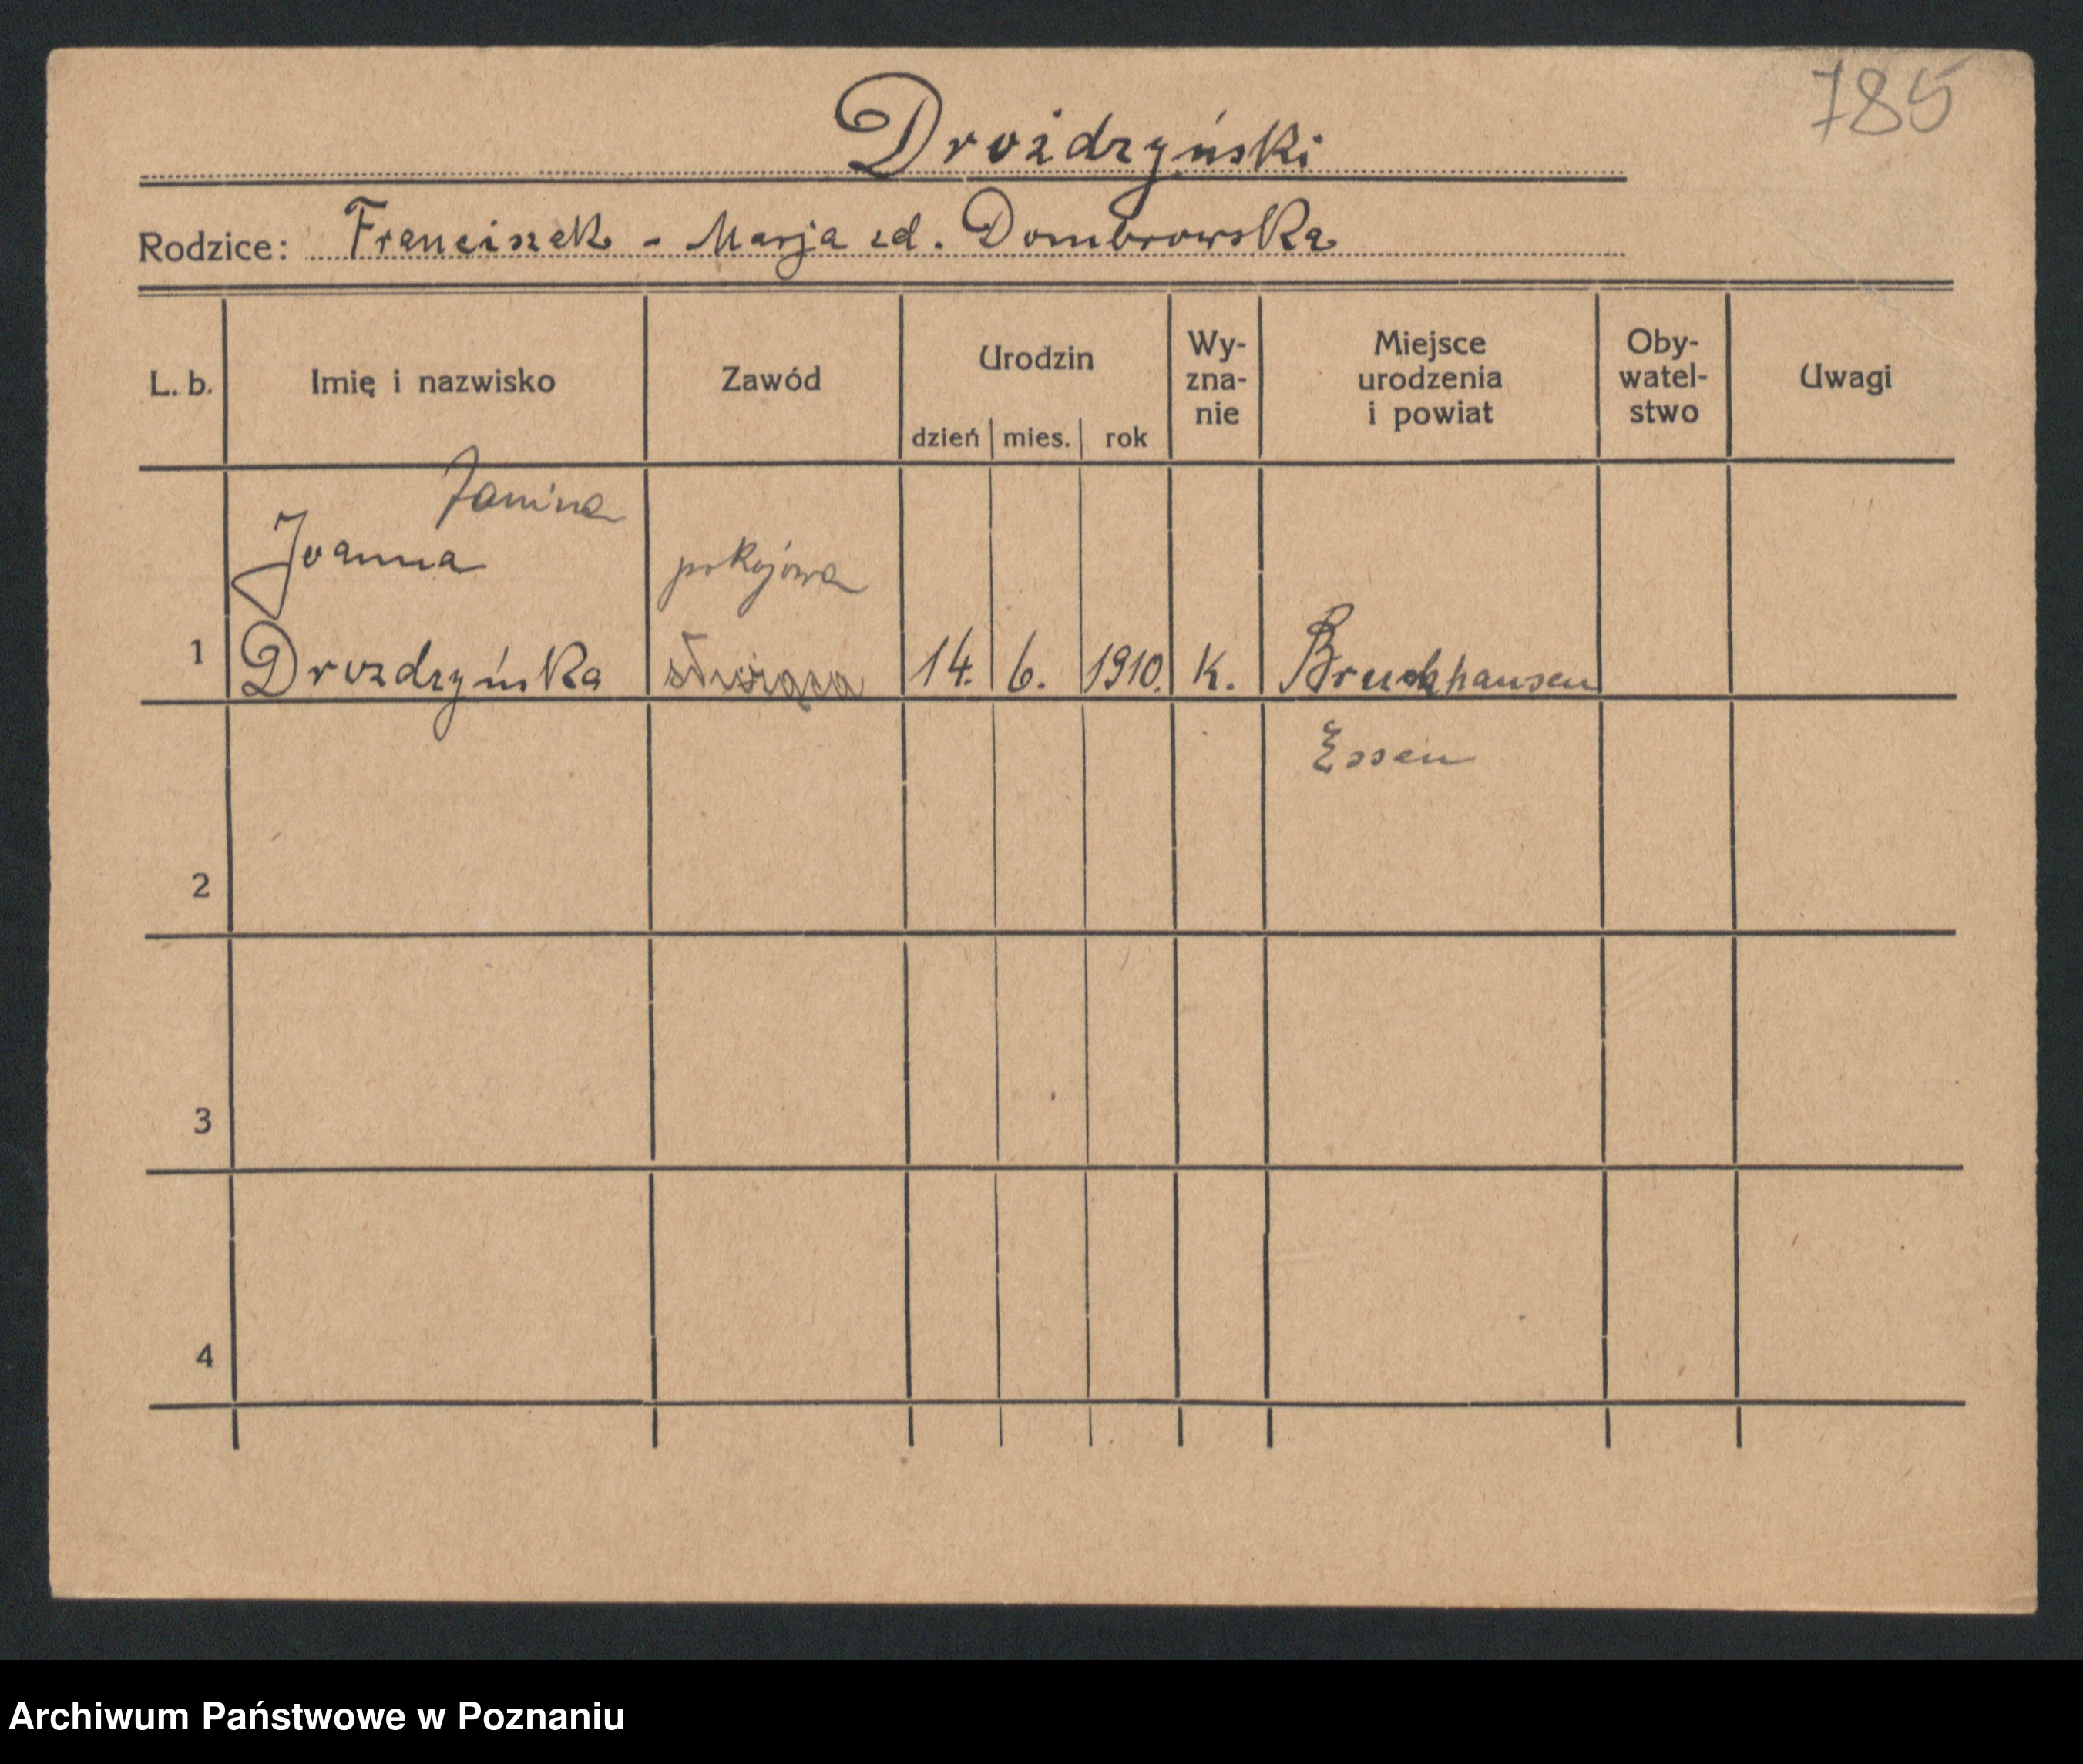 785
Drożdzyński
Rodzice: Franciszek - Marja zd. Dombrowska
L. b. Imię i nazwisko Zawód Urodzin dzień mies. rok Wy-zna-nie Miejsce urodzenia i powiat Oby-watel-stwo Uwagi
Janina
Joanna pokojowa
1 Drozdzyńska służąca 14. 6. 1910. K. Bruckhausen
Essen
2
3
4
Archiwum Państwowe w Poznaniu